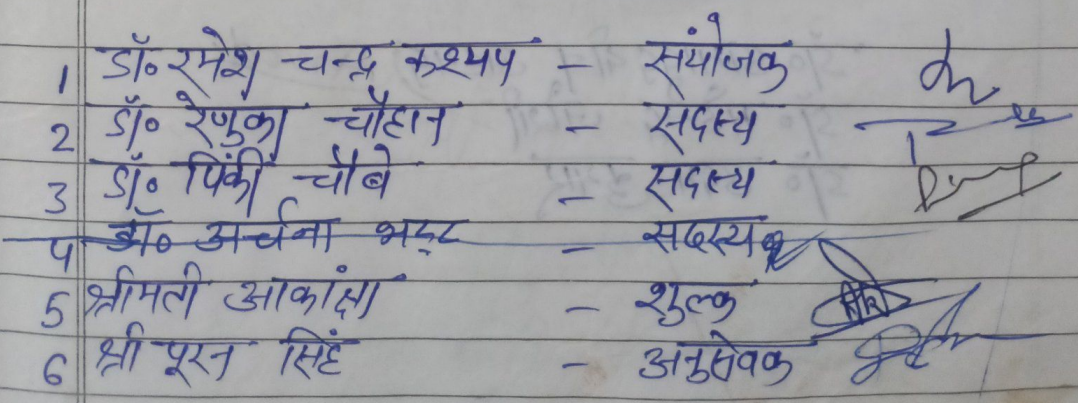 1 डॉ॰ रमेश चन्द्र कश्यप - संयोजक
2 डॉ॰ रेणुका चौहान - सदस्य
3 डॉ॰ पिंकी चौबे - सदस्य
4 डॉ॰ अर्चना भट्ट - सदस्य
5 श्रीमती आकांक्षा - शुल्क
6 श्री पूरन सिंह - अनुसेवक